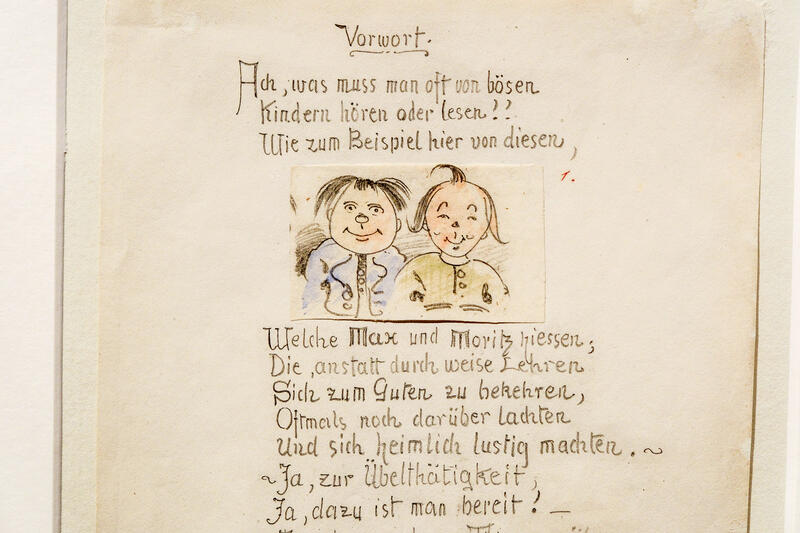 Vorwort.
Ach, was muss man oft von bösen
Kindern hören oder lesen!?
Wie zum Beispiel hier von diesen,
1.
Welche Max und Moritz hiessen;
Die, anstatt durch weise Lehren
Sich zum Guten zu bekehren,
Oftmals noch darüber lachten
Und sich heimlich lustig machten. ~
~ Ja, zur Übelthätigkeit,
Ja, dazu ist man bereit! —